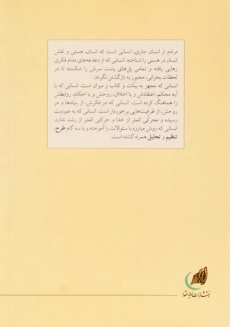 مرادم از انسان جاری، انسانی است که انسان، هستی و نقش
انسان در هستی را شناخته، انسانی که از دغدغه‌های مدام فکری
رهایی یافته و تمامی پل‌های پشت سرش را شکسته تا در
لحظات بحرانی، مجبور به بازگشتن نگردد.
انسانی که مجهز به بینات و کتاب و میزان است. انسانی که با
آیه محکم، اعتقادش و با اخلاق، روحش و با احکام، روابطش
را هماهنگ کرده است. انسانی که در فکرش، از بنیادها و در
روحش، از ظرفیت‌هایی برخوردار است. انسانی که به عبودیت
رسیده و محرکی کمتر از خدا و حرکتی کمتر از رشد ندارد.
انسانی که روش مبارزه با سئوالات را آموخته و با سه گام طرح،
تنظیم و تحلیل همراه گشته است.